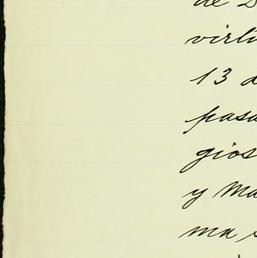 de D
virtu
13 d
pasa
gios
y Ma
ma